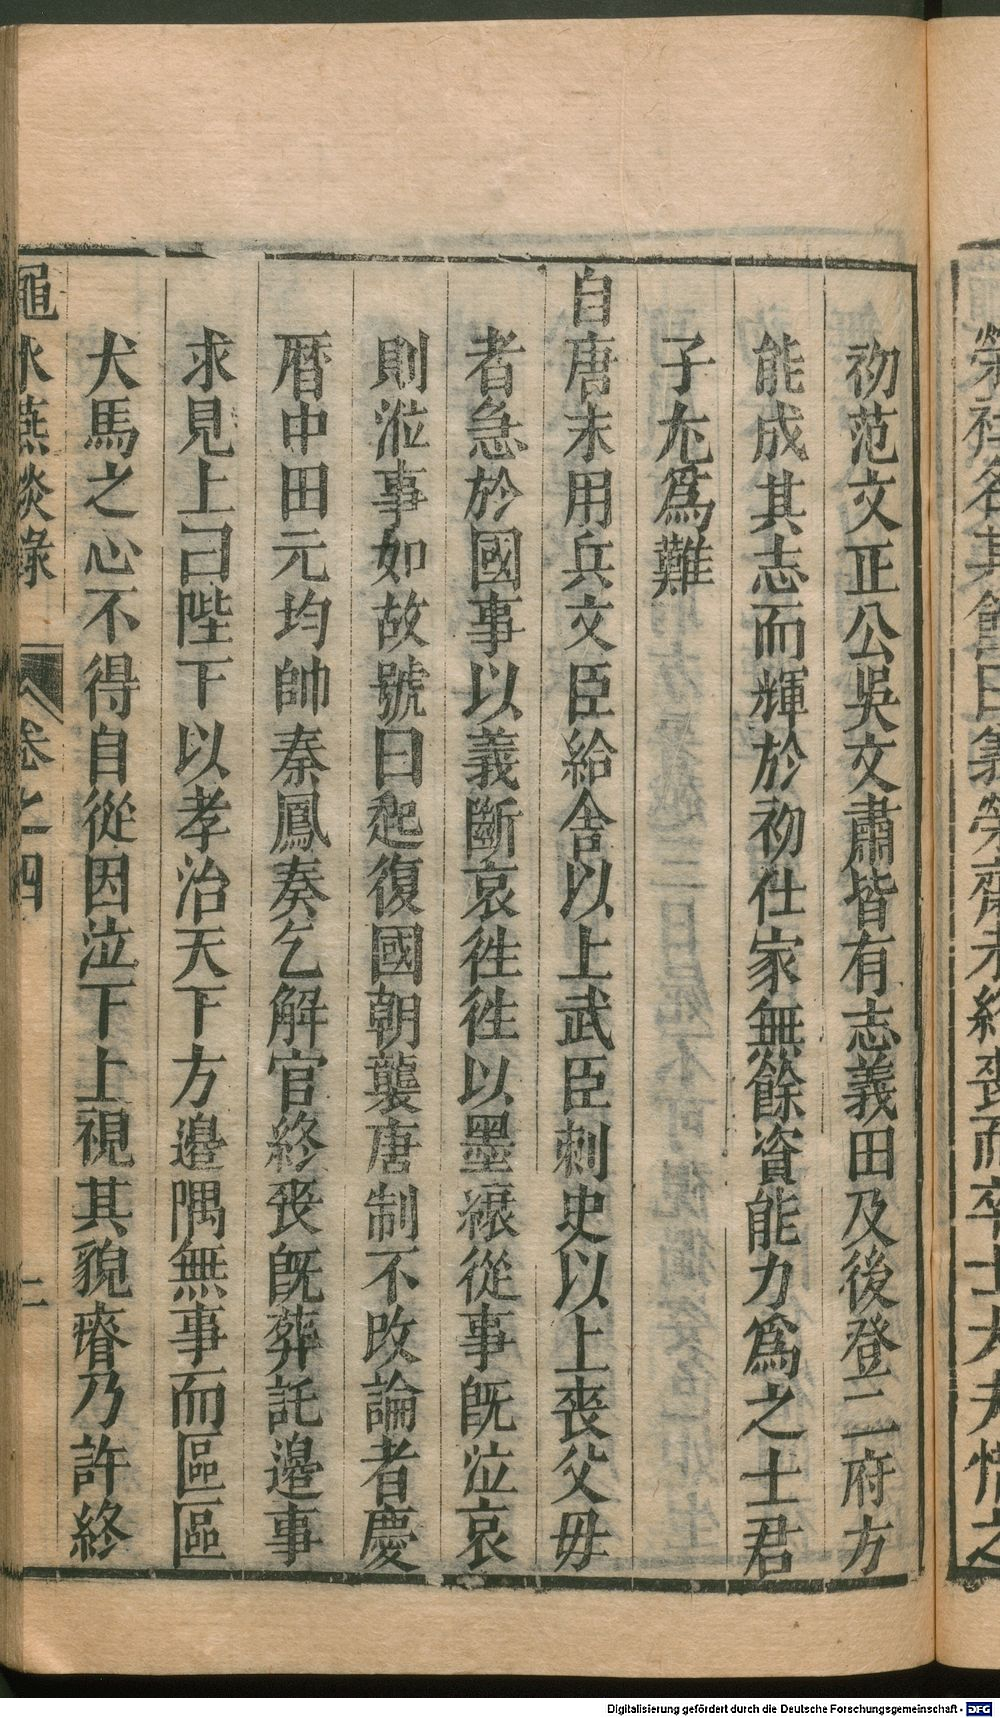 榮
初范文正公吳文肅皆有志義田及後登二府方
能成其志而輝於初仕家無餘資能力爲之士君
子尤爲難
自唐末用兵文臣給舍以上武臣刺史以上丧父毋
者急於國事以義斷哀徃徃以墨縗從事旣泣哀
則涖事如故號曰起復國朝襲唐制不改論者慶
曆中田元均帥秦鳳奏乞解官終丧旣葬託邊事
求見上曰陛下以孝治天下方邊隅無事而區區
犬馬之心不得自從因泣下上視其貌瘠乃許終
澠水燕談錄 卷之四 二
Digitalisierung gefördert durch die Deutsche Forschungsgemeinschaft - DFG